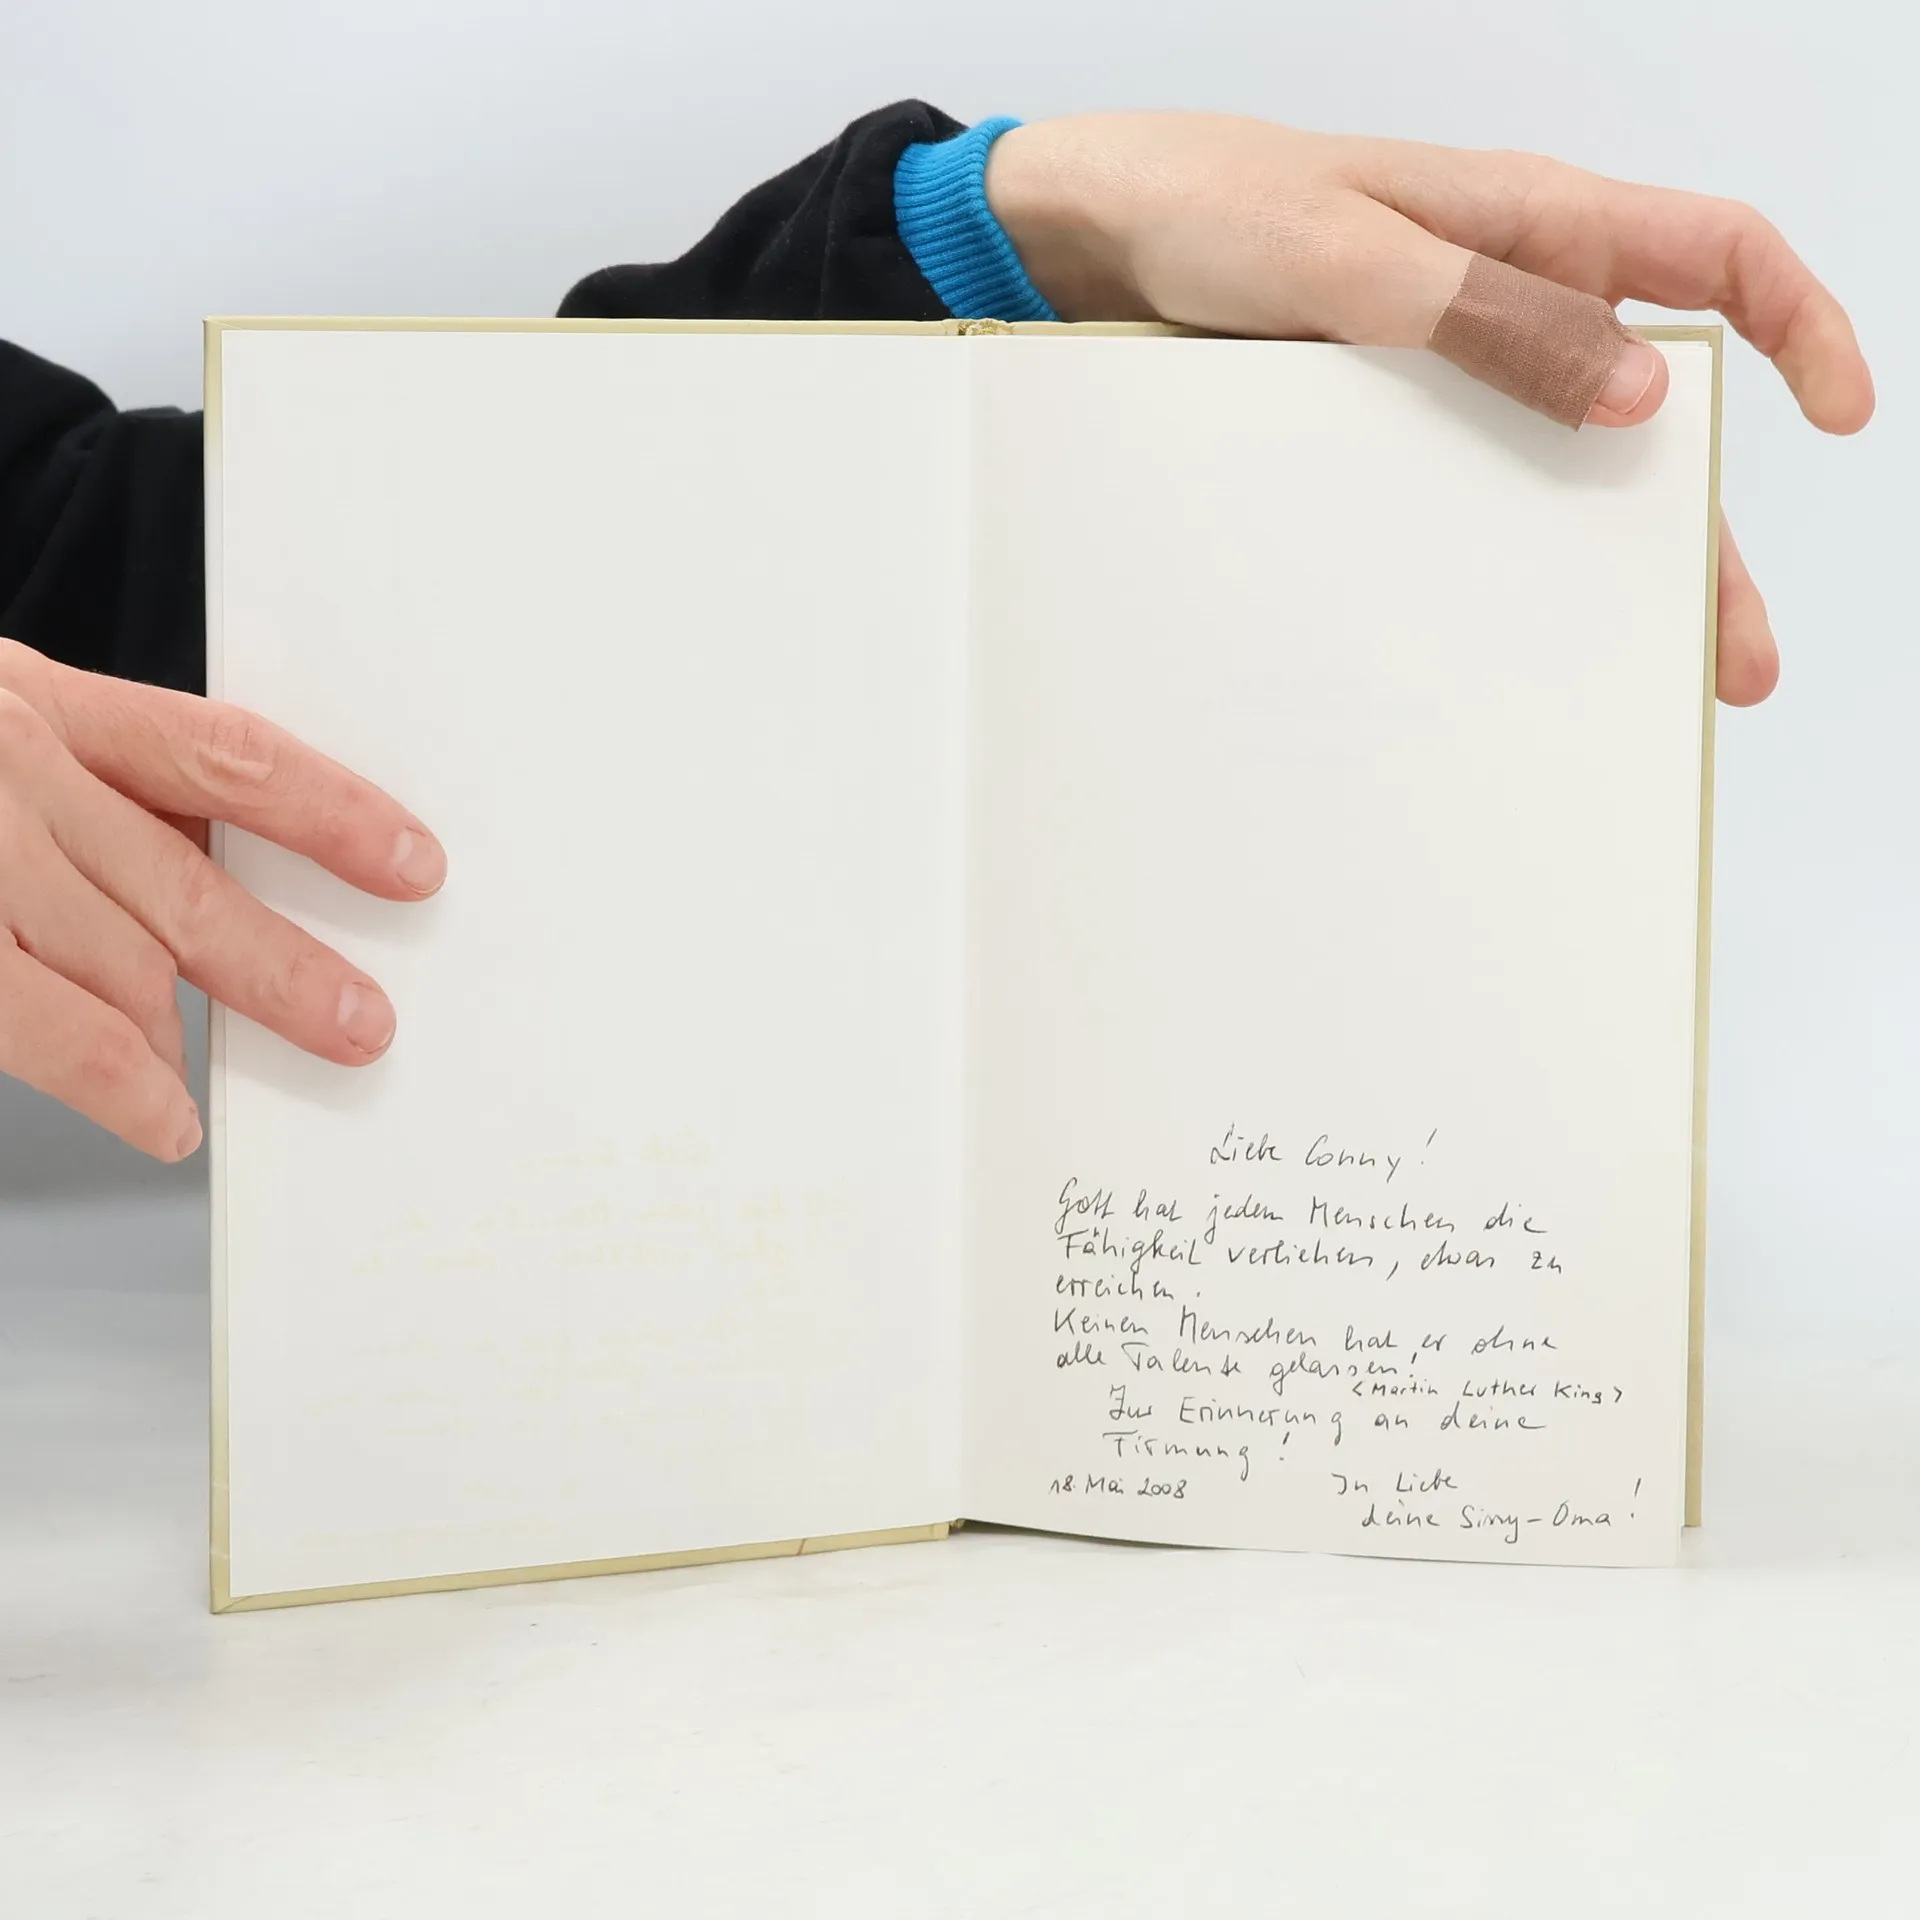 Liebe Conny!
Gott hat jedem Menschen die
Fähigkeit verliehen, etwas zu
erreichen.
Keinen Menschen hat er ohne
alle Talente gelassen!
<Martin Luther King>
Zur Erinnerung an deine
Firmung!
18. Mai 2008
In Liebe
deine Sissy-Oma!